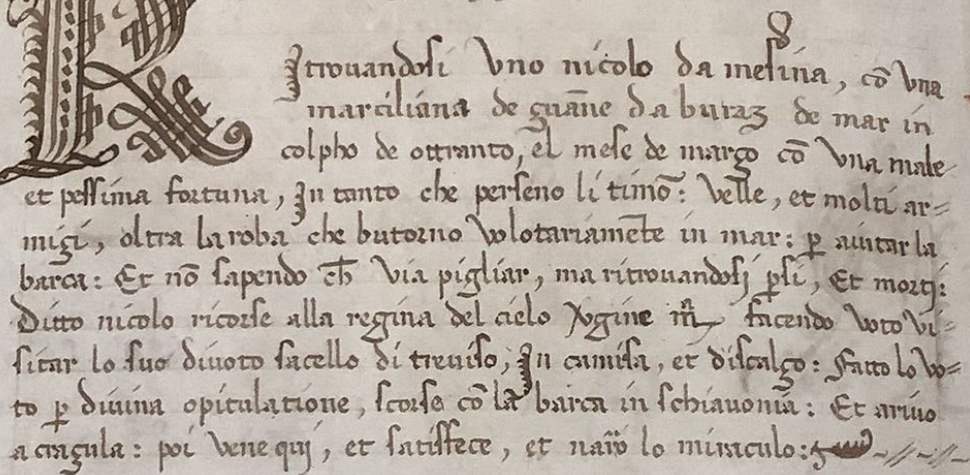 RJtrouandosi Vno nicolo da mesina, cō Vna
marciliana de guāne da buraʒ de mar in
colpho de ottranto, el mese de março cō Vna male
et pessima fortuna, Jn tanto che perseno li timō: Velle, et molti ar=
migi, oltra la roba che butorno Volotariamēte in mar: ꝑ aiutar la
barca: Et nō sapendo ch̄ Via pigliar, ma ritrouandosj ꝑsi, Et mortj:
Ditto nicolo ricorse alla regina del cielo Vgine m̄ facendo Voto Vi=
sitar lo suo diuoto sacello di treuiso, Jn camisa, et discalço: Fatto lo Vo=
to ꝑ diuina opitulatione, scorse cō la barca in schiauonia: Et ariuo
a cragula: poi Vene quj, et satisfece, et narō lo miraculo: